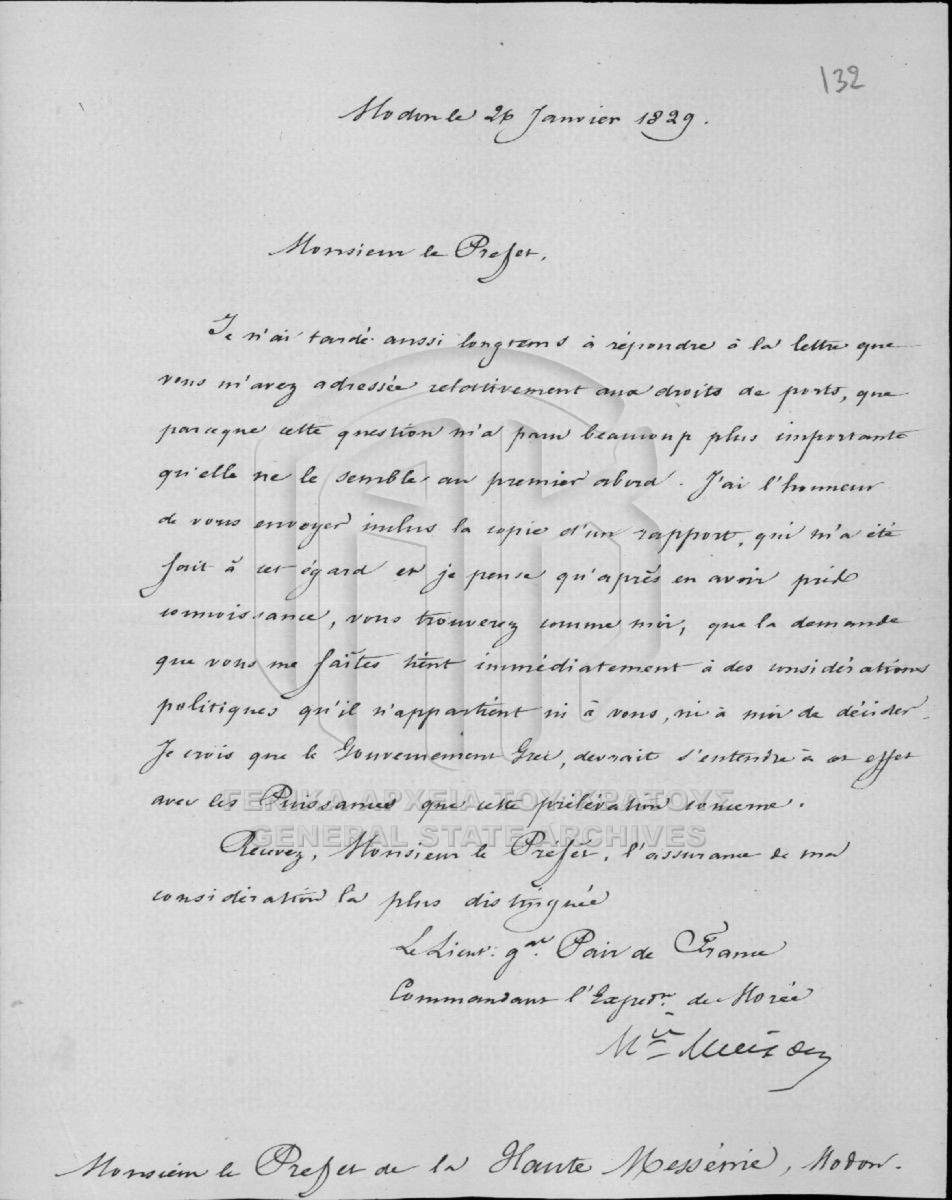 132
Modon le 26 Janvier 1829.
Monsieur le Prefet,
Je n'ai tardé aussi longtems à répondre à la lettre que
vous m'avez adressée relativement aux droits de ports, que
parceque cette question m'a paru beaucoup plus importante
qu'elle ne le semble au premier abord. J'ai l'honneur
de vous envoyer inclus la copie d'un rapport, qui m'a été
fait à cet égard et je pense qu'après en avoir pris
connoissance, vous trouverez comme moi, que la demande
que vous me faites tient immédiatement à des considérations
politiques qu'il n'appartient ni à vous, ni à moi de décider.
Je crois que le Gouvernement Grec, devrait s'entendre à cet effet
avec les Puissances que cette prélèvation concerne.
ΓΕΝΙΚΑ ΑΡΧΕΙΑ ΤΟΥ ΚΡΑΤΟΥΣ
GENERAL STATE ARCHIVES
Recevez, Monsieur le Préfet, l'assurance de ma
considération la plus distinguée
Le Lieut. gal. Pair de France
Commandant l'Expedn. de Morée
Mis Maison
Monsieur le Prefet de la Haute Messénie, Modon.